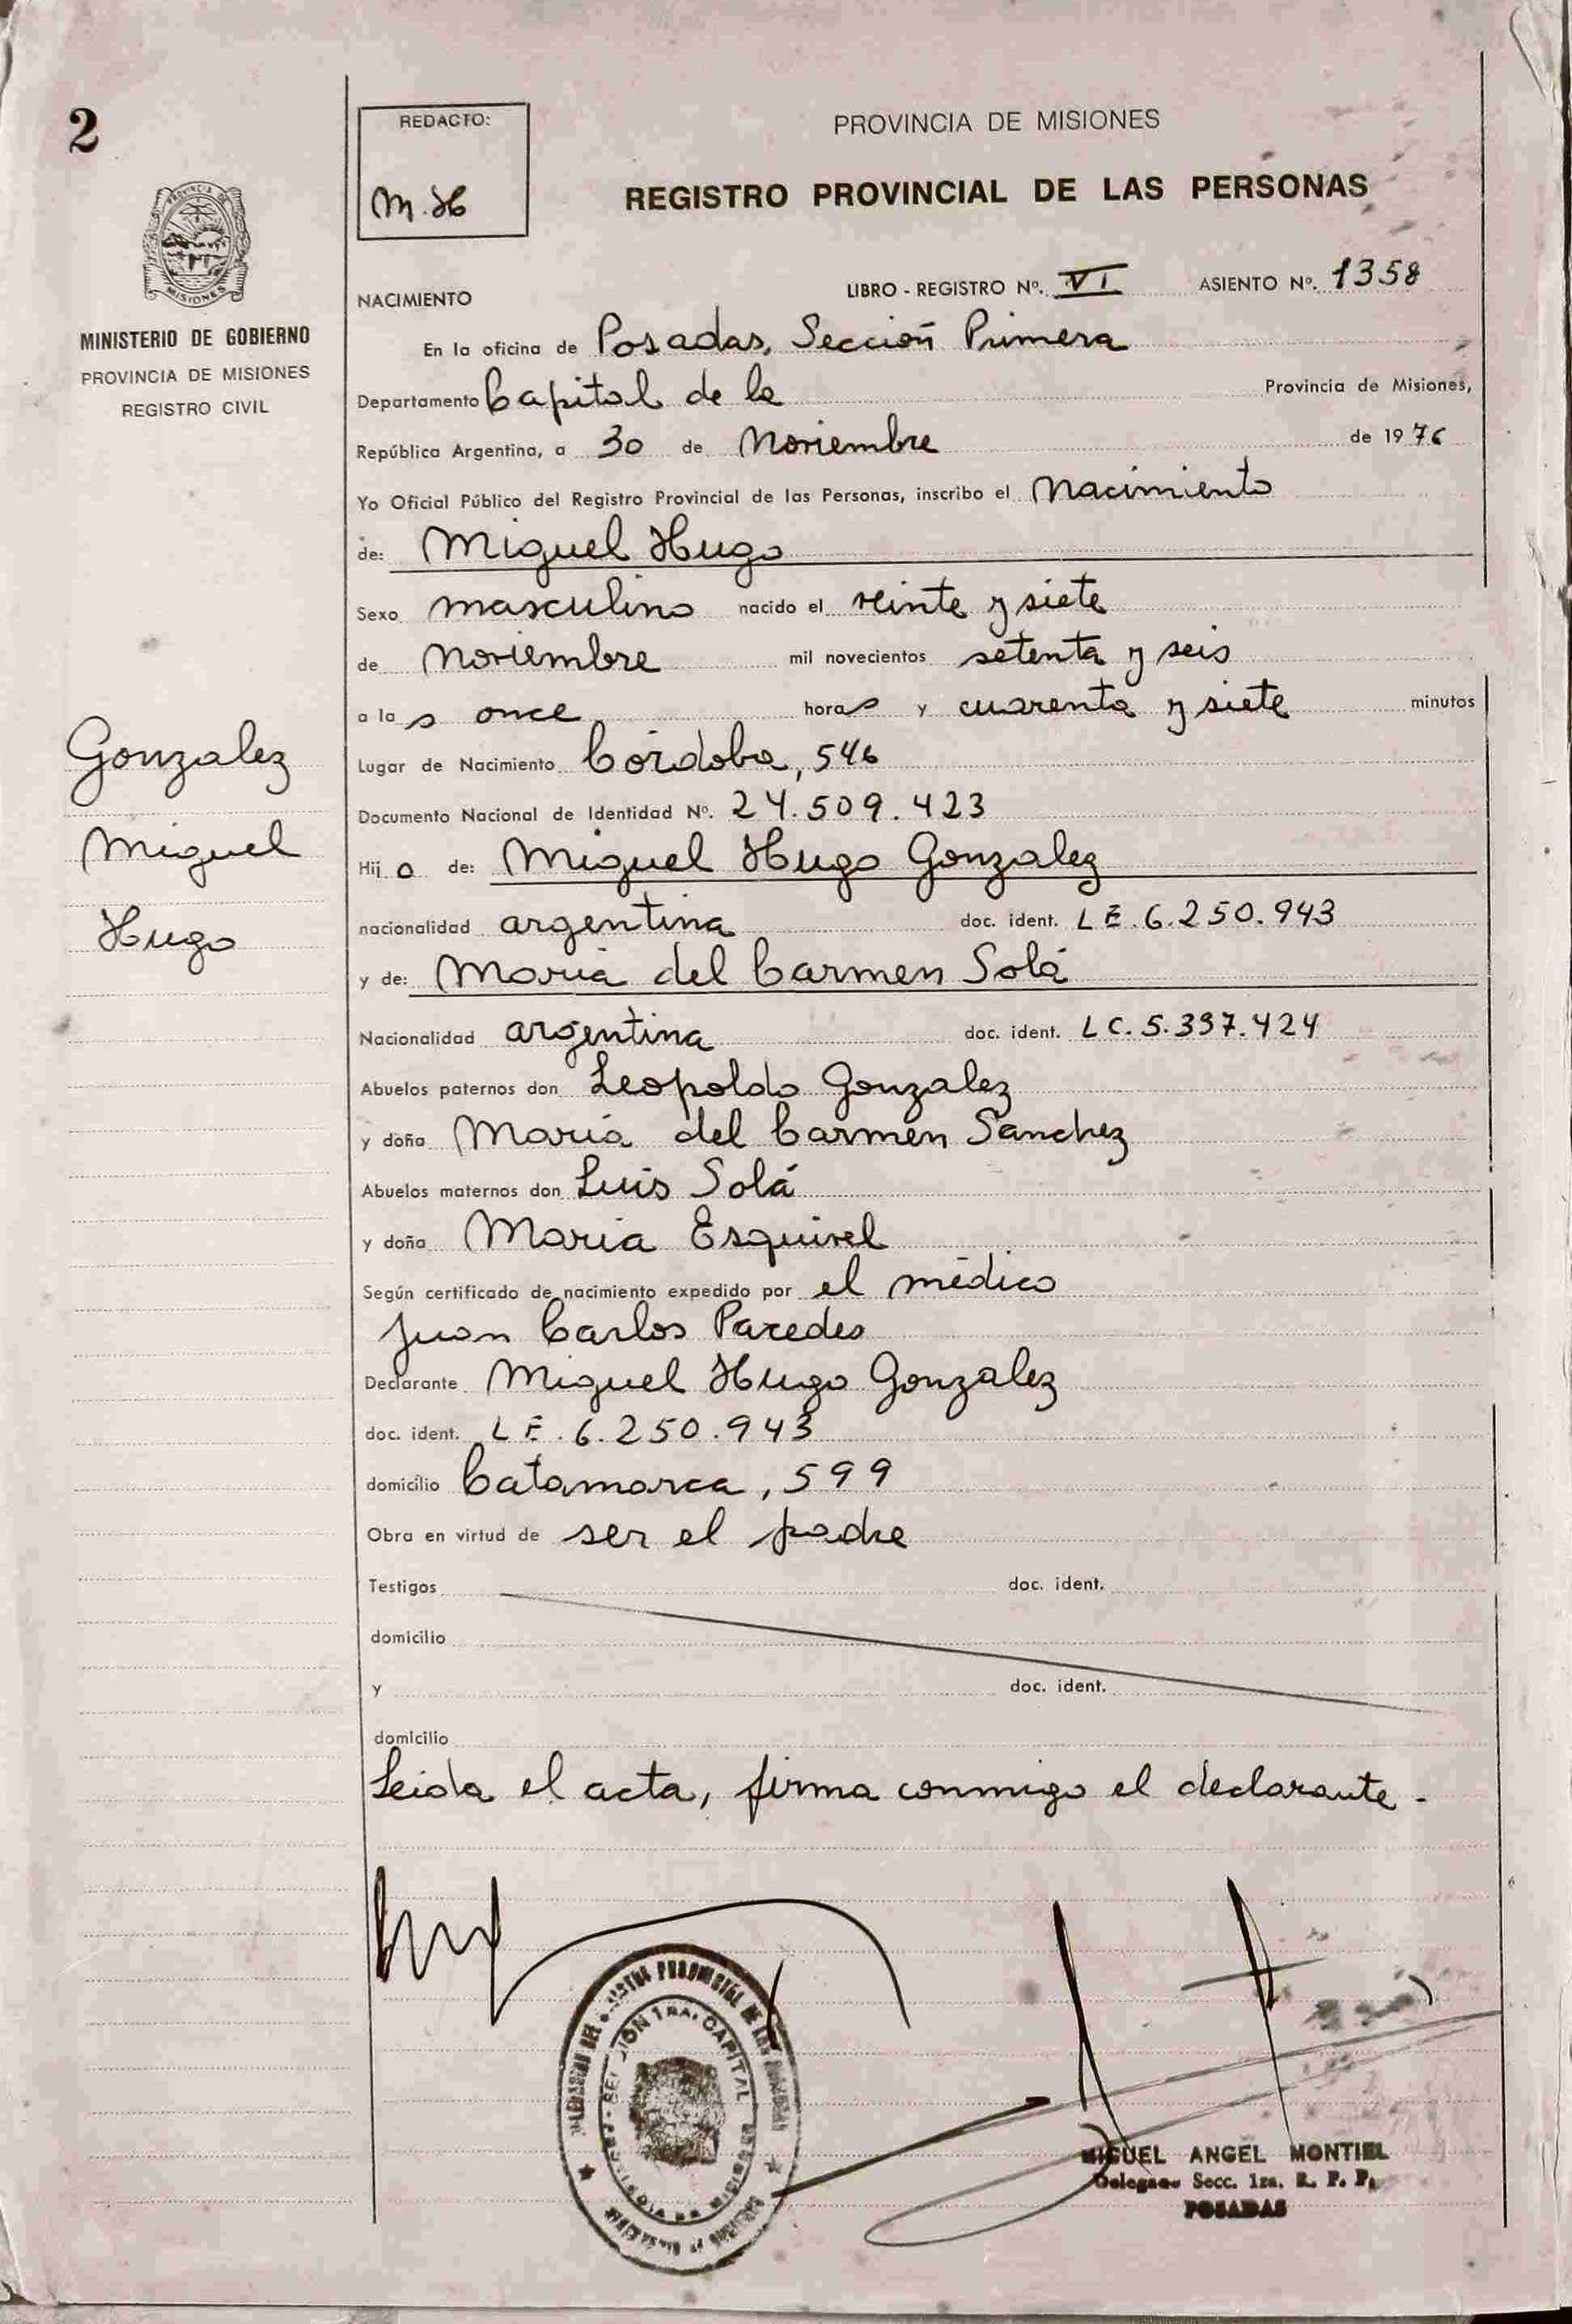 2
REDACTO:
M.H
PROVINCIA DE MISIONES
REGISTRO PROVINCIAL DE LAS PERSONAS
MISIONES
MINISTERIO DE GOBIERNO
PROVINCIA DE MISIONES
REGISTRO CIVIL
NACIMIENTO LIBRO - REGISTRO Nº. VI ASIENTO Nº. 1358
En la oficina de Posadas, Sección Primera
Departamento Capital de la Provincia de Misiones,
República Argentina, a 30 de Noviembre de 1976
Yo Oficial Público del Registro Provincial de las Personas, inscribo el Nacimiento
de: Miguel Hugo
Sexo masculino nacido el veinte y siete
de Noviembre mil novecientos setenta y seis
a la s once horas y cuarenta y siete minutos
Lugar de Nacimiento Córdoba, 546
Documento Nacional de Identidad Nº. 24.509.423
Hij o de: Miguel Hugo Gonzalez
nacionalidad argentina doc. ident. L E. 6.250.943
y de: María del Carmen Solá
Nacionalidad argentina doc. ident. L C. 5.397.424
Abuelos paternos don Leopoldo Gonzalez
y doña María del Carmen Sanchez
Abuelos maternos don Luis Solá
y doña Maria Esquivel
Según certificado de nacimiento expedido por el médico
Juan Carlos Paredes
Declarante Miguel Hugo Gonzalez
doc. ident. L E. 6.250.943
domicilio Catamarca, 599
Obra en virtud de ser el padre
Testigos doc. ident.
domicilio
y doc. ident.
domicilio
Leida el acta, firma conmigo el declarante.
Gonzalez
Miguel
Hugo
CAPITAL
MIGUEL ANGEL MONTIEL
Delegado Secc. 1ra. R. P. P.
POSADAS